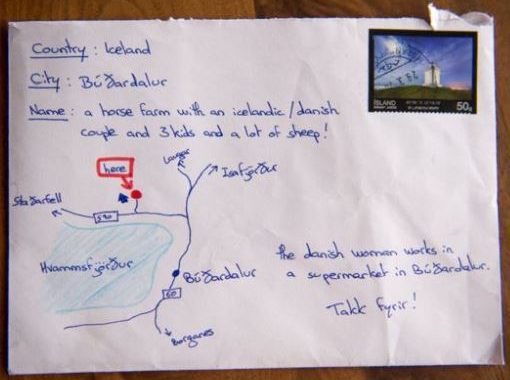 Country : Iceland
City : Búðardalur
Name : a horse farm with an icelandic/danish
couple and 3 kids and a lot of sheep!
ÍSLAND
50g
here
Laugar
Isafjörður
Staðarfell
590
Hvammsfjörður
Búðardalur
60
Borganes
the danish woman works in
a supermarket in Búðardalur.
Takk fyrir!